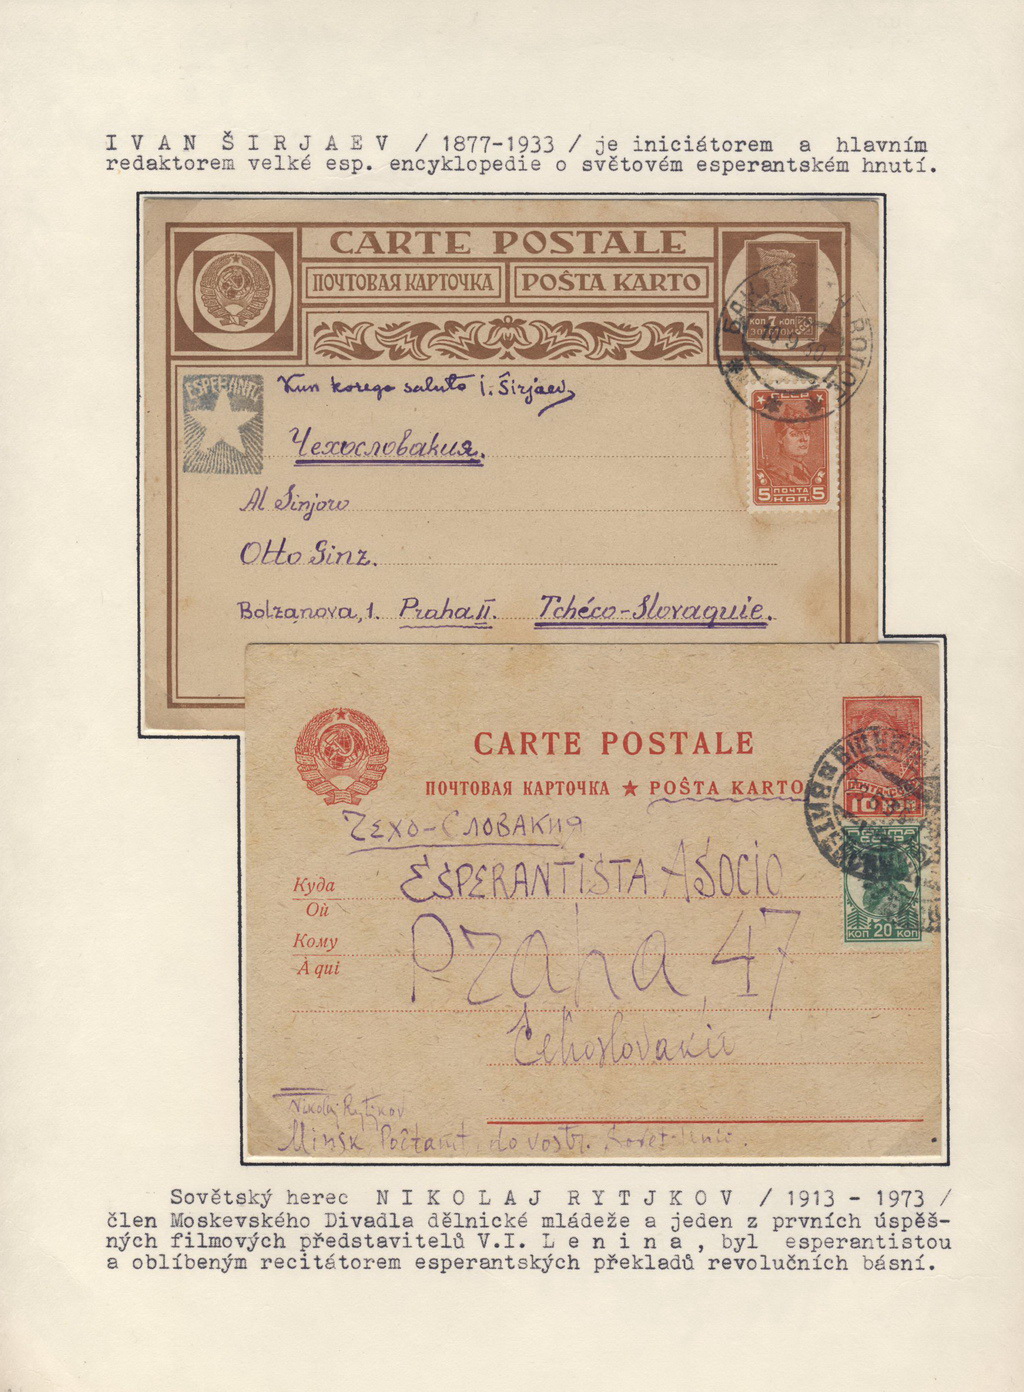 IVAN ŠIRJAEV / 1877-1933 / je iniciátorem a hlavním
redaktorem velké esp. encyklopedie o světovém esperantském hnutí.
CARTE POSTALE
ПОЧТОВАЯ КАРТОЧКА POŜTA KARTO
КОП. 7 КОП.
ЗОЛОТОМ
ESPERANTO
Kun korega saluto I. Ŝirjaev
Чехословакия.
СССР
5 ПОЧТА 5
КОП.
Al Sinjoro
Otto Ginz.
Bolzanova, 1. Praha II. Tchéco-Slovaquie.
CARTE POSTALE
ПОЧТОВАЯ КАРТОЧКА ★ POŜTA KARTO
ПОЧТА
10
Чехо-Словакия
Куда
ESPERANTISTA ASOCIO
Où
Кому
Praha, 47
À qui
КОП 20 КОП
Ĉeĥoslovakio
Nikolaj Rytjkov
Minsk Poĉtamt do vostr.
Sovětský herec NIKOLAJ RYTJKOV / 1913 - 1973 /
člen Moskevského Divadla dělnické mládeže a jeden z prvních úspěš-
ných filmových představitelů V.I. Lenina, byl esperantistou
a oblíbeným recitátorem esperantských překladů revolučních básní.